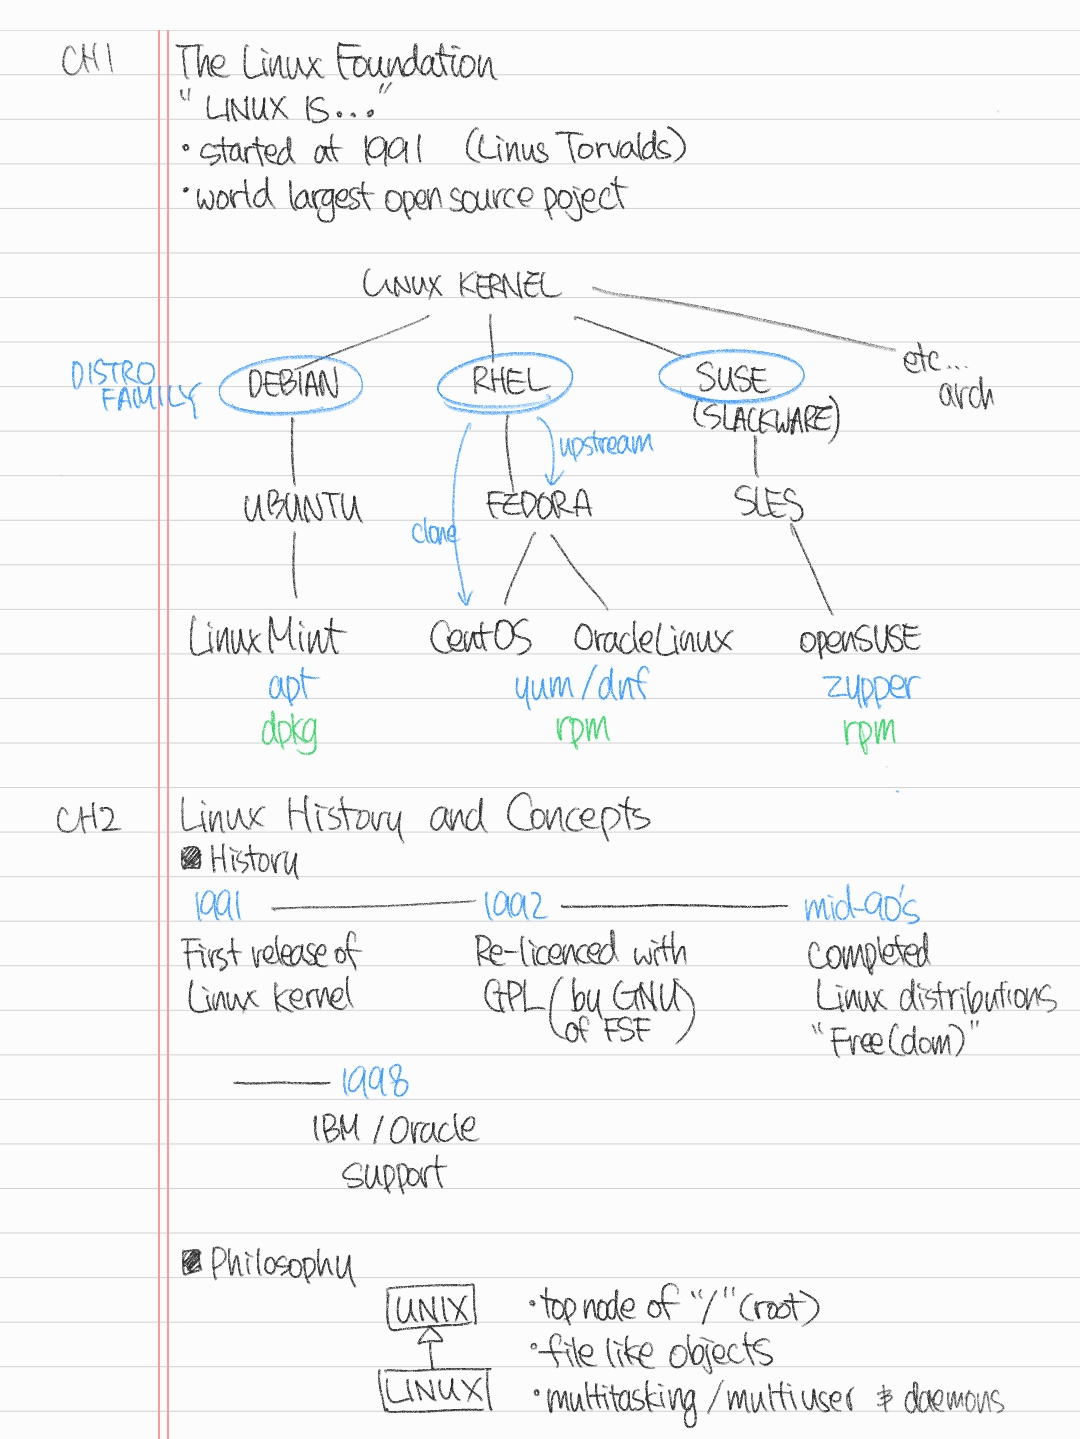 CH1 The Linux Foundation
"LINUX IS..."
• started at 1991 (Linus Torvalds)
• world largest open source poject
LINUX KERNEL
DISTRO FAMILY
DEBIAN RHEL SUSE etc... arch
(SLACKWARE)
upstream
UBUNTU FEDORA SLES
clone
Linux Mint CentOS OracleLinux openSUSE
apt yum/dnf zypper
dpkg rpm rpm
CH2 Linux History and Concepts
History
1991 1992 mid-90's
First release of Re-licenced with completed
Linux kernel GPL (by GNU Linux distributions
of FSF) "Free(dom)"
1998
IBM / Oracle
support
Philosophy
UNIX • top node of "/" (root)
• file like objects
LINUX • multitasking / multiuser & daemons